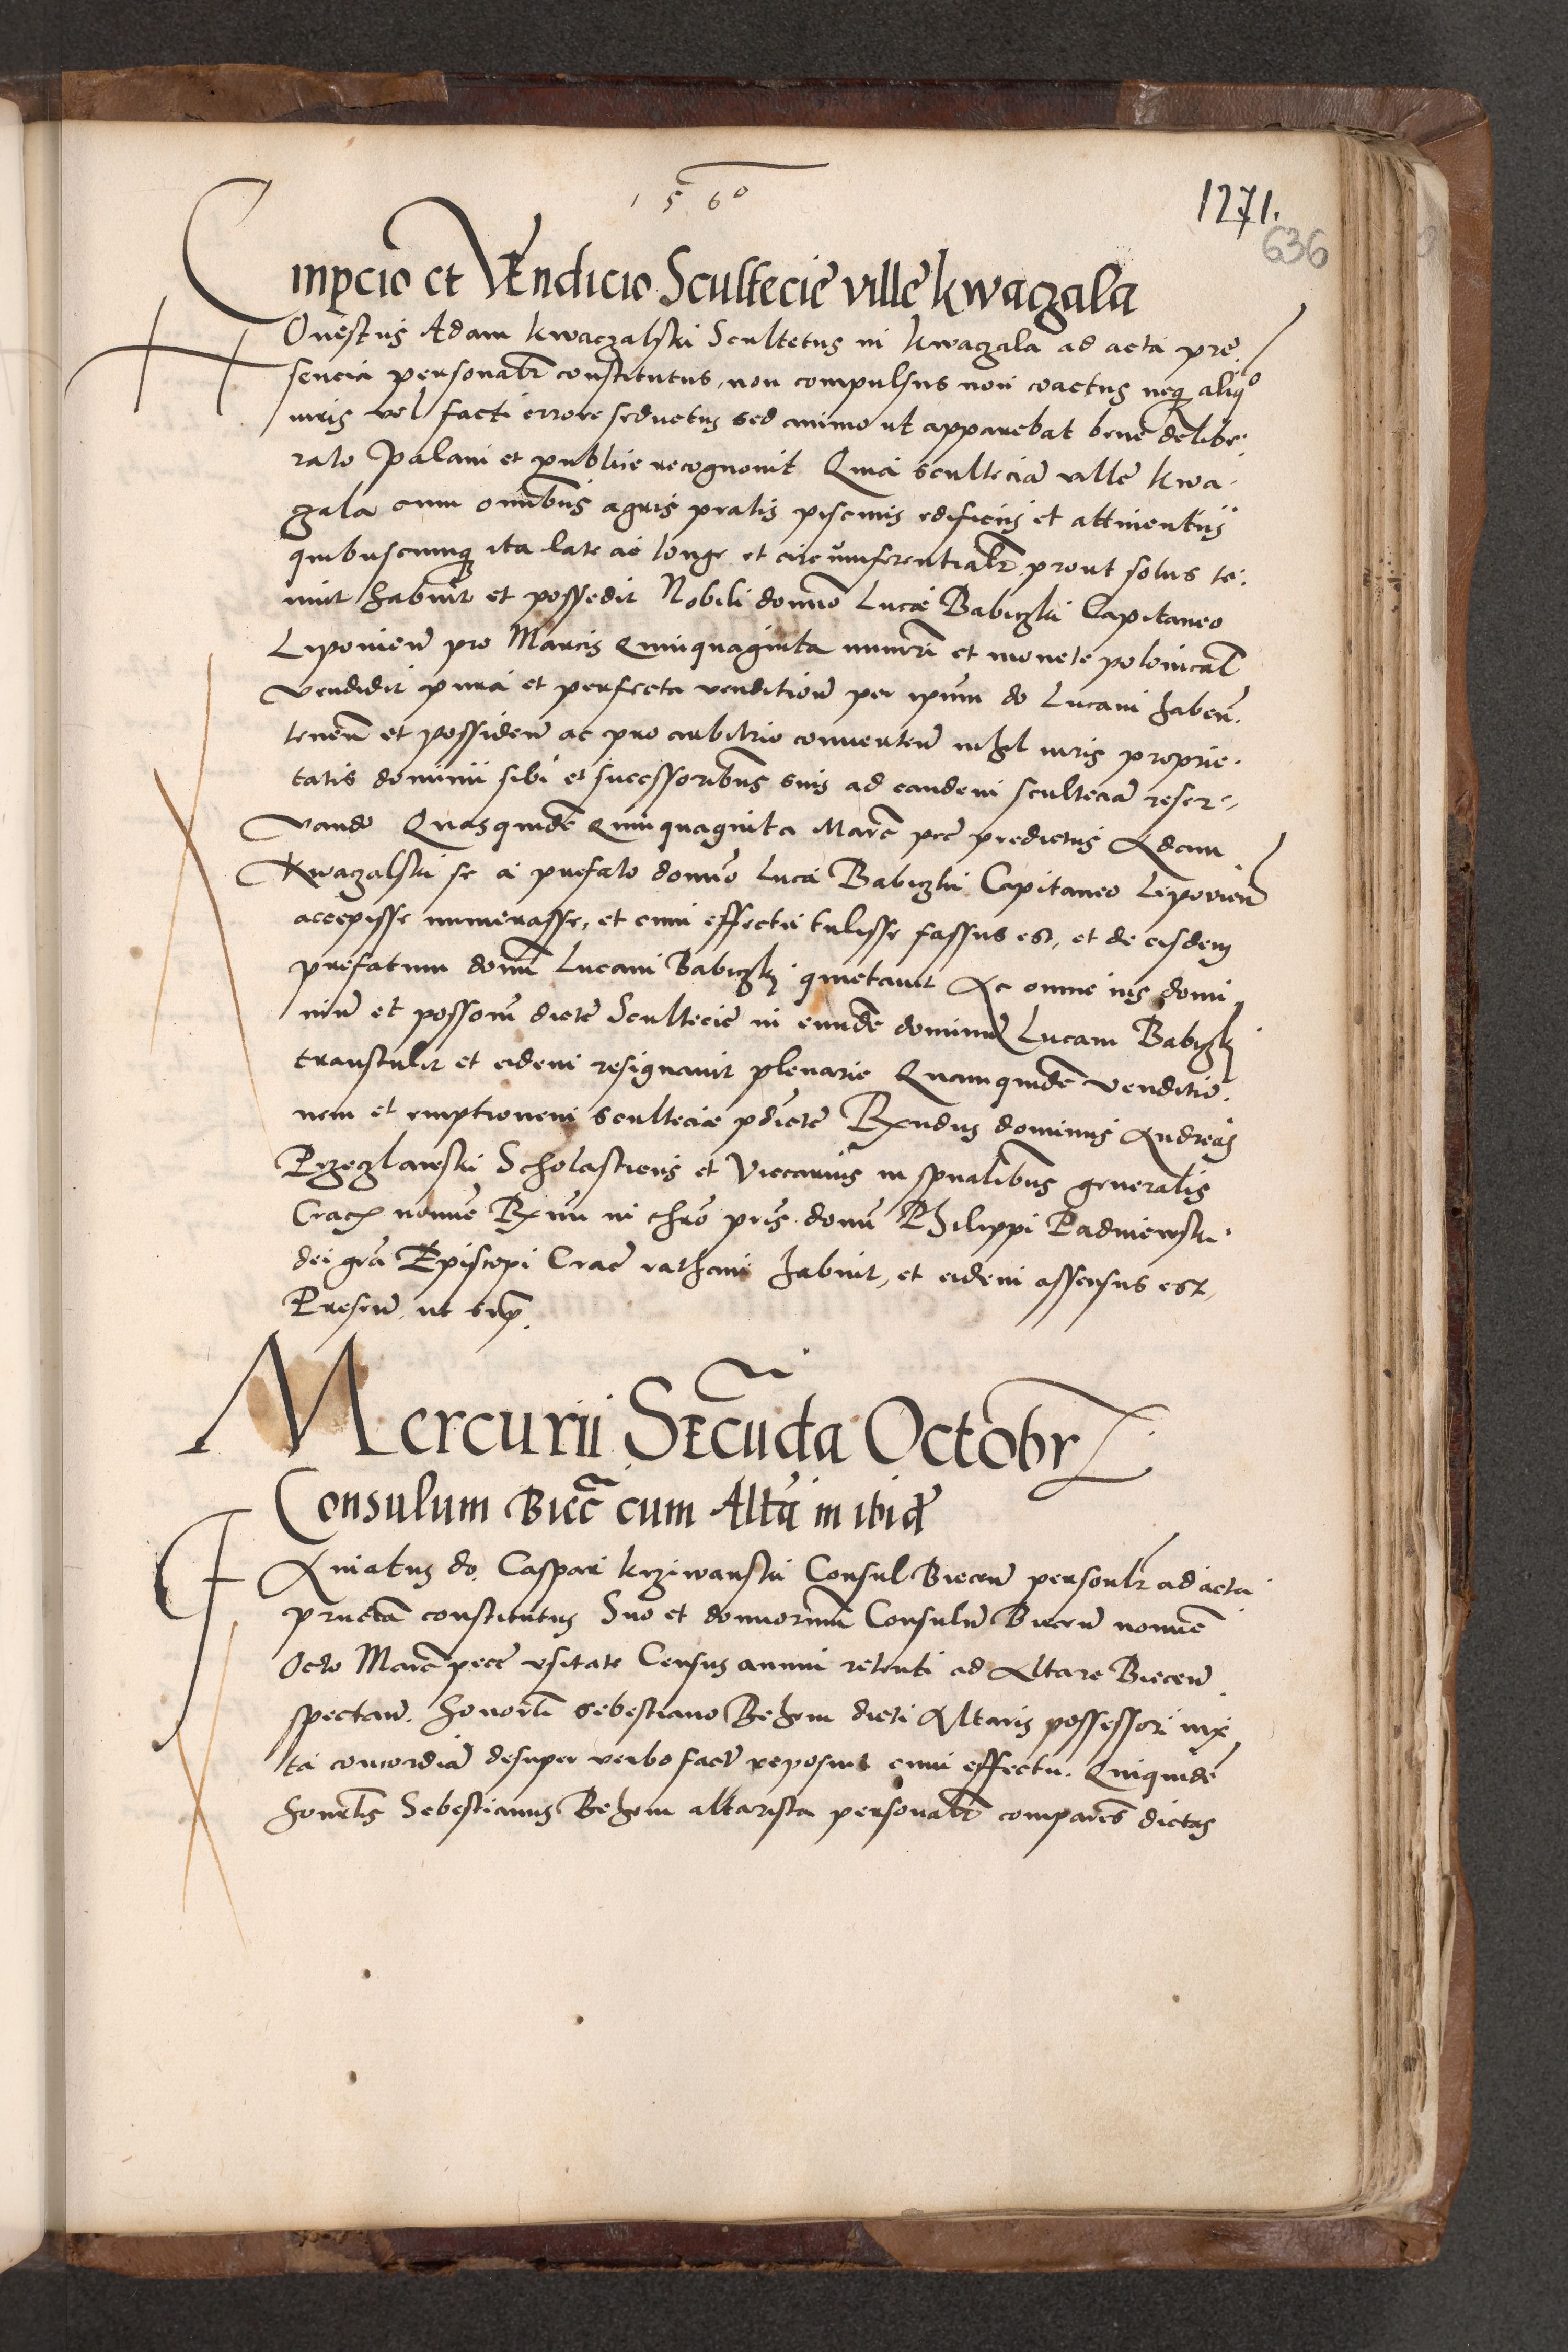 1560
1271.
636
Empcio et Vendicio Scultecie ville Kwaczala
Honestus Adam Kwaczalski Scultetus in Kwaczala ad acta pre-
sencia personalr constitutus, non compulsus non coactus neq aliqo
iuris vel facti errore seductus sed animo ut apparebat bene delibe-
rato Palam et publice recognovit Quia scultecia ville Kwa-
czala cum omibus agris pratis piscinis edificiis et attinentiis
quibuscunq ita late ac longe et circumferentialr prout solus te-
nuit habuit et possedit Nobili domno Luce Babiczki Capitaneo
Lipovien pro Marcis Quinquaginta numeri et monete polonical
vendidit pura et perfecta venditione per ipum do Lucam haben
tenen et possiden ac pro arbitrio converten nihil iuris proprie-
tatis dominii sibi et successoribus suis ad eandem sculteciam reser-
vando Quasquide Quinquaginta Marc pec predictus Adam
Kwaczalski se a prefato domno Luca Babiczki Capitaneo Lipovien
accepisse numerasse, et cum effectu tulisse fassus est, et de eisdem
prefatum domn Lucam Babiczki quietavit Ac omne ius domi
niu et possom dicte Scultecie in eunde dominu Lucam Babiczki
transtulit et eidem resignavit plenarie Quamquide venditio-
nem et emptionem scultecie pdicte Rxndus dominus Andreas
Przeczlawski Scholasticus et Viccarius in spualibus generalis
Crac nomine Rxmi in chro pris domi Philippi Padniewski
dei gra Episcopi Crac ratham habuit, et eidem assensus est,
Presen ut sup.
Mercurii Secuda Octobr
Consulum Biecc cum Altaria ibide
Famatus do. Caspar Krziwanski Consul Biecen personlr ad acta
prnciam constitutus Suo et domnorum Consulu Biecen nomine
Octo Marc pece usitate Census annui retenti ad Altare Biecen
spectan. honorli Sebestiano Behem dicti Altaris possessori iux
ta concordia desuper verbo facte reposuit cum effectu. Quiquide
honorlis Sebestianus Behem altarista personalr comparens dictas